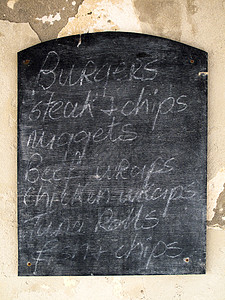 Burgers
steak + chips
nuggets
Beef wraps
Chicken wraps
Tuna Rolls
+ chips